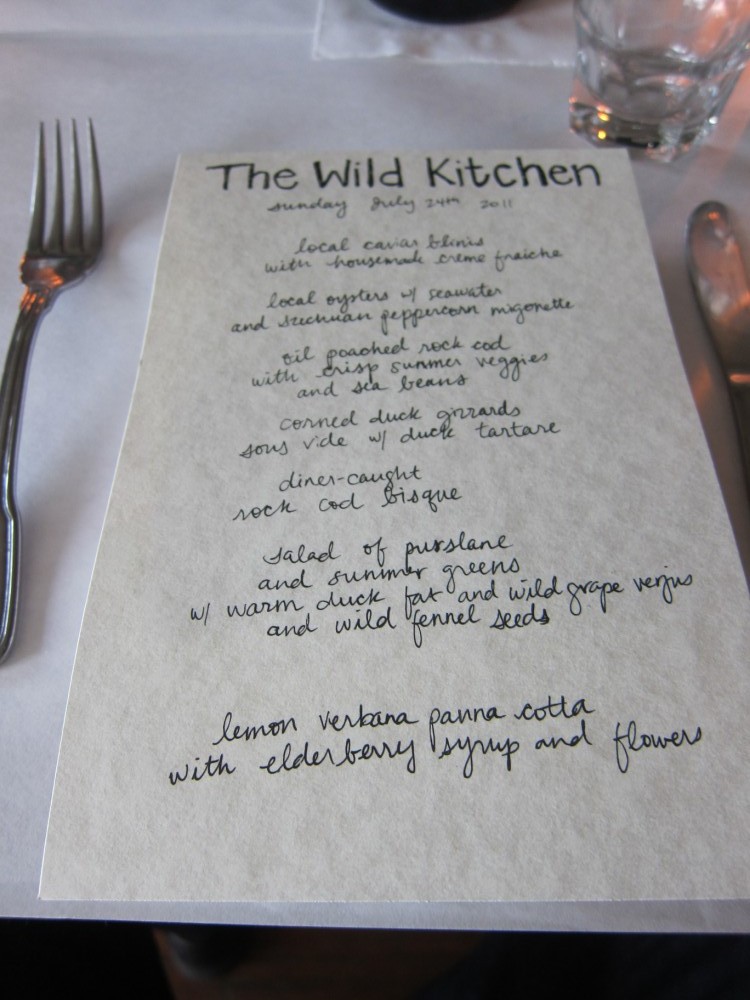 The Wild Kitchen
sunday July 24th 2011
local caviar blinis
with housemade creme fraiche
local oysters w/ seawater
and szechuan peppercorn migonette
oil poached rock cod
with crisp summer veggies
and sea beans
corned duck gizzards
sous vide w/ duck tartare
diner-caught
rock cod bisque
salad of purslane
and summer greens
w/ warm duck fat and wild grape verjus
and wild fennel seeds
lemon verbana panna cotta
with elderberry syrup and flowers